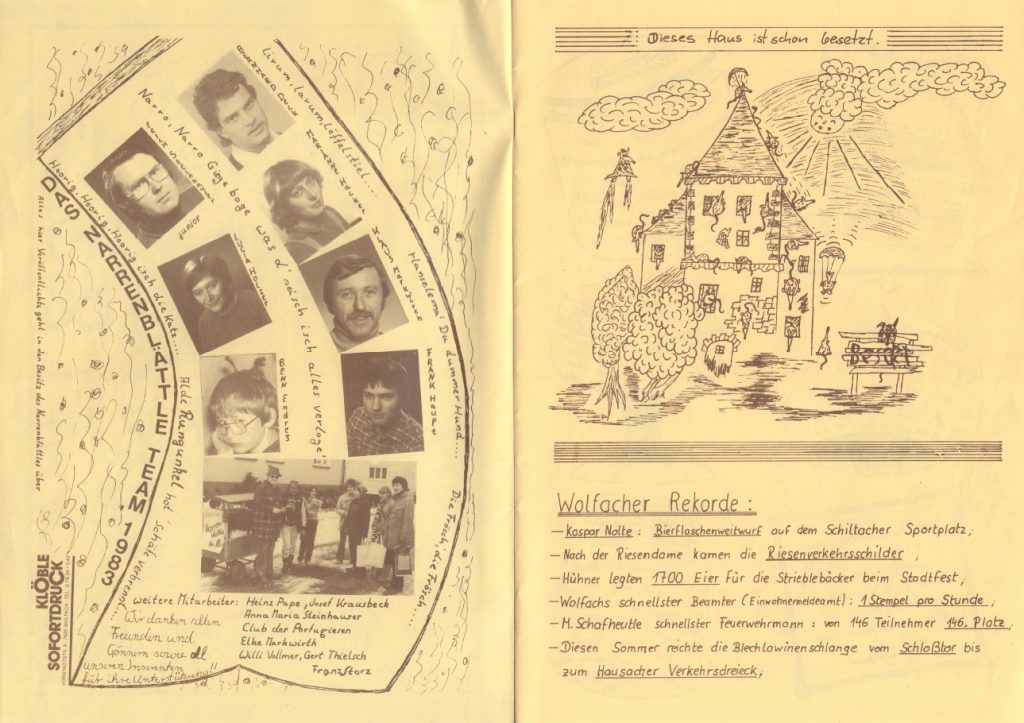 Lirum, larum, Löffelstiel....
Narro, Narro Gige boge
was d' seisch isch alles verloge
Hoorig, Hoorig, Hoorig isch die Katz....
Junior
KLAUS
Hanselema Du dummer Hund.....
BENN Endres
FRANK HAUPT
DAS NARRENBLÄTTLE TEAM '1983
Alles hier Veröffentlichte geht in den Besitz des Narrenblättles über
Alde Rungunkel hot 'schäle verbrennt....
Die Fräsch, die Fräsch.....
KLÖBLE
SOFORTDRUCK
weitere Mitarbeiter: Heinz Pape, Josef Krausbeck
Anna Maria Steinhauser
Club der Portugiesen
Elke Markwirth
Willi Vollmer, Gert Thielsch
Franz Storz
Wir danken allen
Freunden und
Gönnern sowie all
unseren Inserenten
für ihre Unterstützung!!
Dieses Haus ist schon besetzt.
Besetzt
Wolfacher Rekorde:
– Kaspar Nolte : Bierflaschenweitwurf auf dem Schiltacher Sportplatz;
– Nach der Riesendame kamen die Riesenverkehrsschilder ;
– Hühner legten 1700 Eier für die Strieblebäcker beim Stadtfest;
– Wolfachs schnellster Beamter (Einwohnermeldeamt) : 1 Stempel pro Stunde ;
– M. Schafheutle schnellster Feuerwehrmann : von 146 Teilnehmer 146. Platz.
– Diesen Sommer reichte die Blechlawinenschlange vom Schloßtor bis
zum Hausacher Verkehrsdreieck;